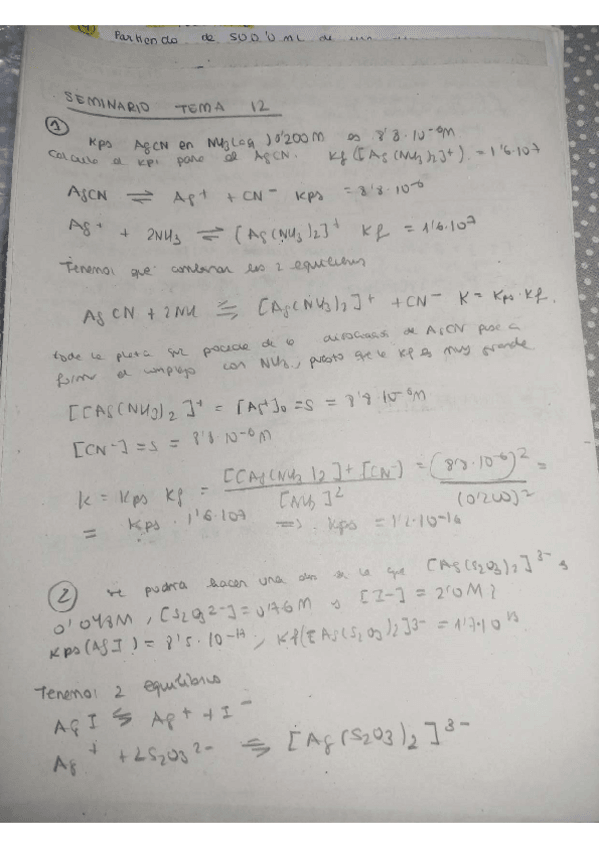 Partiendo de 500'0 mL de
SEMINARIO TEMA 12
① Kps AgCN en NH3(aq) 0'200M es 8'8·10⁻⁶M
Calcula el Kps para el AgCN. Kf ([Ag(NH3)2]+) = 1'6·10⁷
AgCN ⇌ Ag+ + CN⁻ Kps = 8'8·10⁻⁶
Ag+ + 2NH3 ⇌ [Ag(NH3)2]+ Kf = 1'6·10⁷
Tenemos que combinar los 2 equilibrios
AgCN + 2NH ⇌ [Ag(NH3)2]+ + CN⁻ K = Kps·Kf.
toda la plata que procede de la disociación de AgCN pasa a
formar el complejo con NH3, puesto que la Kf es muy grande
[[Ag(NH3)2]+ = [Ag+]0 = S = 8'8·10⁻⁶M
[CN⁻] = S = 8'8·10⁻⁶M
K = Kps Kf = [[Ag(NH3)2]+[CN⁻] / [NH3]² = (8'8·10⁻⁶)² / (0'200)² =
= Kps · 1'6·10⁷ => Kps = 1'2·10⁻¹⁶
② se podría hacer una en la que [Ag(S2O3)2]³⁻ s
0'048M, [S2O3²⁻] = 0'76M y [I⁻] = 2'0M?
Kps(AgI) = 8'5·10⁻¹⁷, Kf([Ag(S2O3)2]³⁻ = 1'7·10¹³
Tenemos 2 equilibrios
AgI ⇌ Ag+ + I⁻
Ag+ + 2S2O3²⁻ ⇌ [Ag(S2O3)2]³⁻